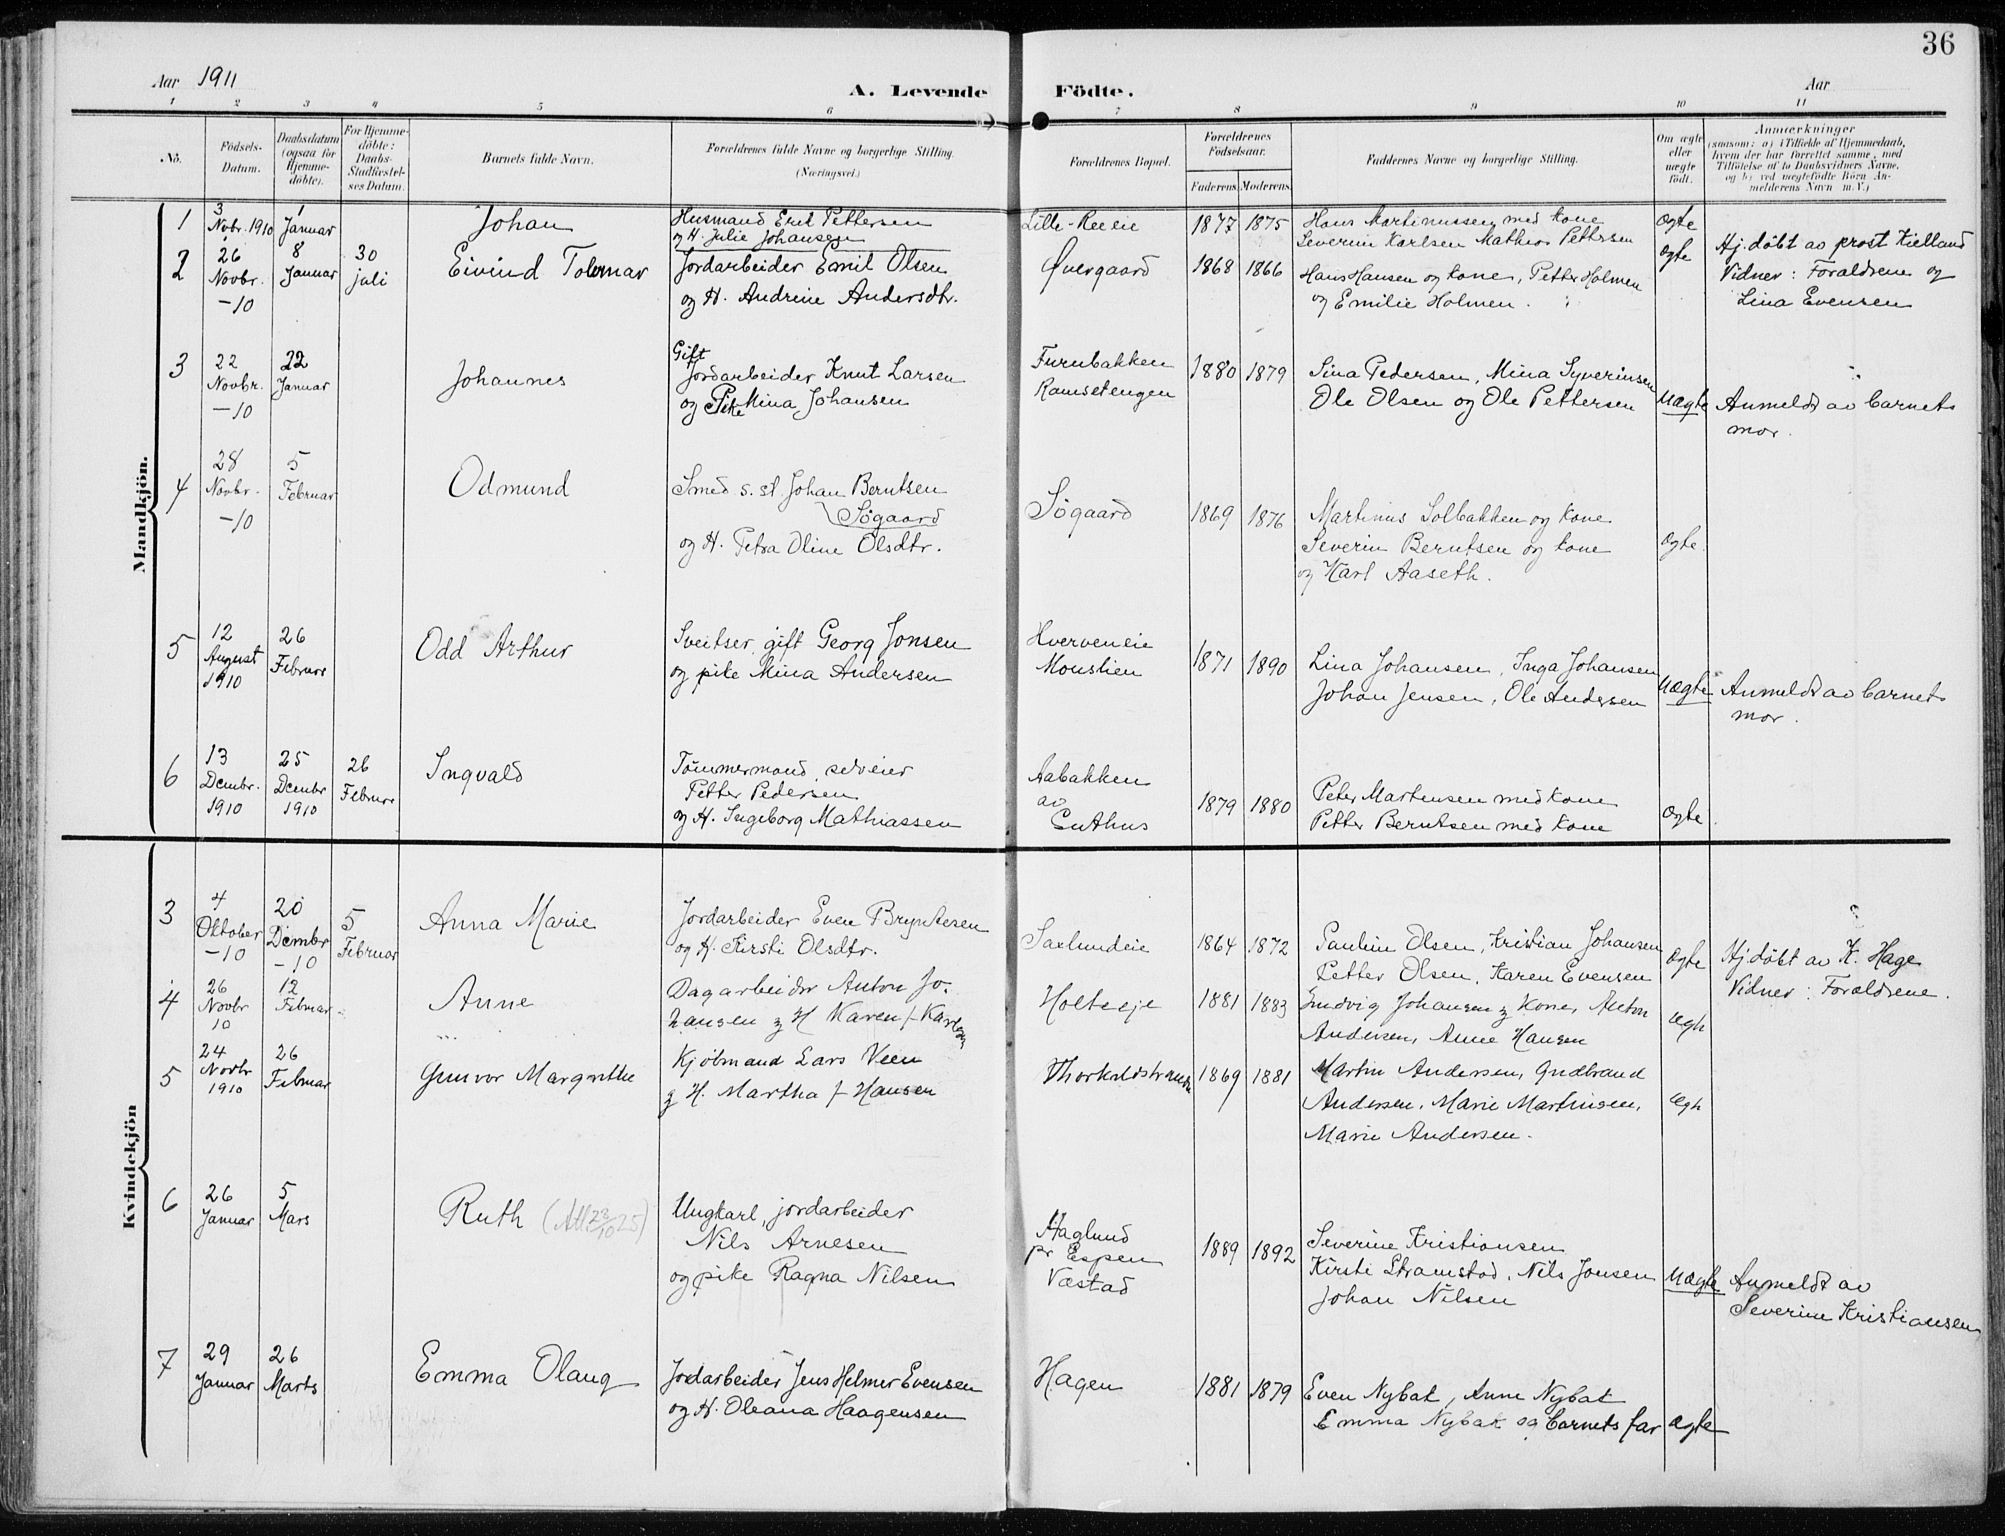 36
Aar 1911
A. Levende Födte.
Aar
1 2 3 4 5 6 7 8 9 10 11
No.
Födsels-Datum.
Daabsdatum (ogsaa for Hjemme-döbte).
For Hjemme-döbte: Daabs-Stadfæstelses Datum.
Barnets fulde Navn.
Forældrenes fulde Navne og borgerlige Stilling. (Næringsvei.)
Forældrenes Bopæl.
Forældrenes Födselsaar.
Faderens. Moderens.
Faddernes Navne og borgerlige Stilling.
Om ægte eller uægte födt.
Anmærkninger
(saasom: a) i Tilfælde af Hjemmedaab, hvem der har forrettet samme, med Tilföielse af to Daabsvidners Navne, og b) ved uægtefödte Börn Anmelderens Navn m. V.)
Mandkjön.
1
3 Novbr. 1910
1 Januar
Johan
Husmand Emil Pettersen
og H. Julie Johansen
Lille-
1877 1875
Hans Martinussen med kone
Severin Karlsen Mathea Pettersen
Ægte
2
26 Novbr. -10
8 Januar
30 juli
Eivind
Jordarbeider Emil Olsen
og H. Andrine Andersdtr.
Øvergaard
1868 1866
Hans Hansen og kone, Petter Holmen
og Emilie Holmen.
Ægte
Hj.döbt av prost Kielland
Vidner: Forældrene og
Lina Evensen
3
22 Novbr. -10
22 Januar
Johannes
Gift
Jordarbeider Knut Larsen
og Pike Mina Johansen
Furubakken
Ramsetengen
1880 1879
Sina Pedersen, Mina Syverinsen
Ole Olsen og Ole Pettersen
Uægte
Anmeldt av barnets
mor.
4
28 Novbr. -10
5 Februar
Odmund
Smed s. st. Johan Berntsen
Søgaard
og H. Petra Oline Olsdtr.
Søgaard
1869 1876
Martinus Solbakken og kone
Severin Berntsen og kone
og Karl Aaseth.
Ægte.
5
12 August 1910
26 Februar
Odd Arthur
Sveitser, gift Georg Jonsen
og pike Mina Andersen
Hverveneie
Monslien
1871 1890
Lina Johansen, Inga Johansen
Johan Jensen, Ole Andersen
Uægte
Anmeldt av barnets
mor.
6
13 Dcembr. 1910
25 Dcembr 1910
26 Februar
Ingvald
Tömmermand, selveier
Petter Pedersen
og H. Ingeborg Mathiassen
Aabakken
av
1879 1880
Peter Martensen med kone
Petter Berntsen med kone
Ægte.
Kvindekjön
3
4 Oktober -10
20 Dcembr -10
5 Februar
Anna Marie
Jordarbeider Even Bryntesen
og H. Kirsti Olsdtr.
Saxlundeie
1864 1872
Pauline Olsen, Kristian Johansen
Petter Olsen, Karen Evensen
Ægte
Hj.döbt av K. Hage
Vidner: Forældrene.
4
26 Novbr 10
12 Februar
Anne
Dagarbeider Anton Jo-
hansen & H Karen f. Karlsen
Holtseje
1881 1883
Ludvig Johansen & Kone, Anton
Andersen, Anne Hansen
Ægte
5
24 Novbr 1910
26 Februar
Gunvor Margrethe
Kjöbmand Lars Veen
& H. Martha f. Hansen
Thorkildstranden
1869 1881
Martin Andersen, Gudbrand
Andersen, Marie Martinsen,
Marie Andersen.
Ægte
6
26 Januar
5 Mars
Ruth (Att 23/10 25)
Ungkarl, jordarbeider
Nils Arnesen
og pike Ragna Nilsen
Haglund
pr Espen
Væstad
1889 1892
Severine Kristiansen
Kirsti Stramstad, Nils Jonsen
Johan Nilsen
Uægte
Anmeldt av
Severine Kristiansen
7
29 Januar
26 Marts
Emma Olaug
Jordarbeider Jens Helmer Evensen
og H. Oleana Haagensen
Hagen
1881 1879
Even Nybak, Anne Nybak
Emma Nybak og barnets far
Ægte